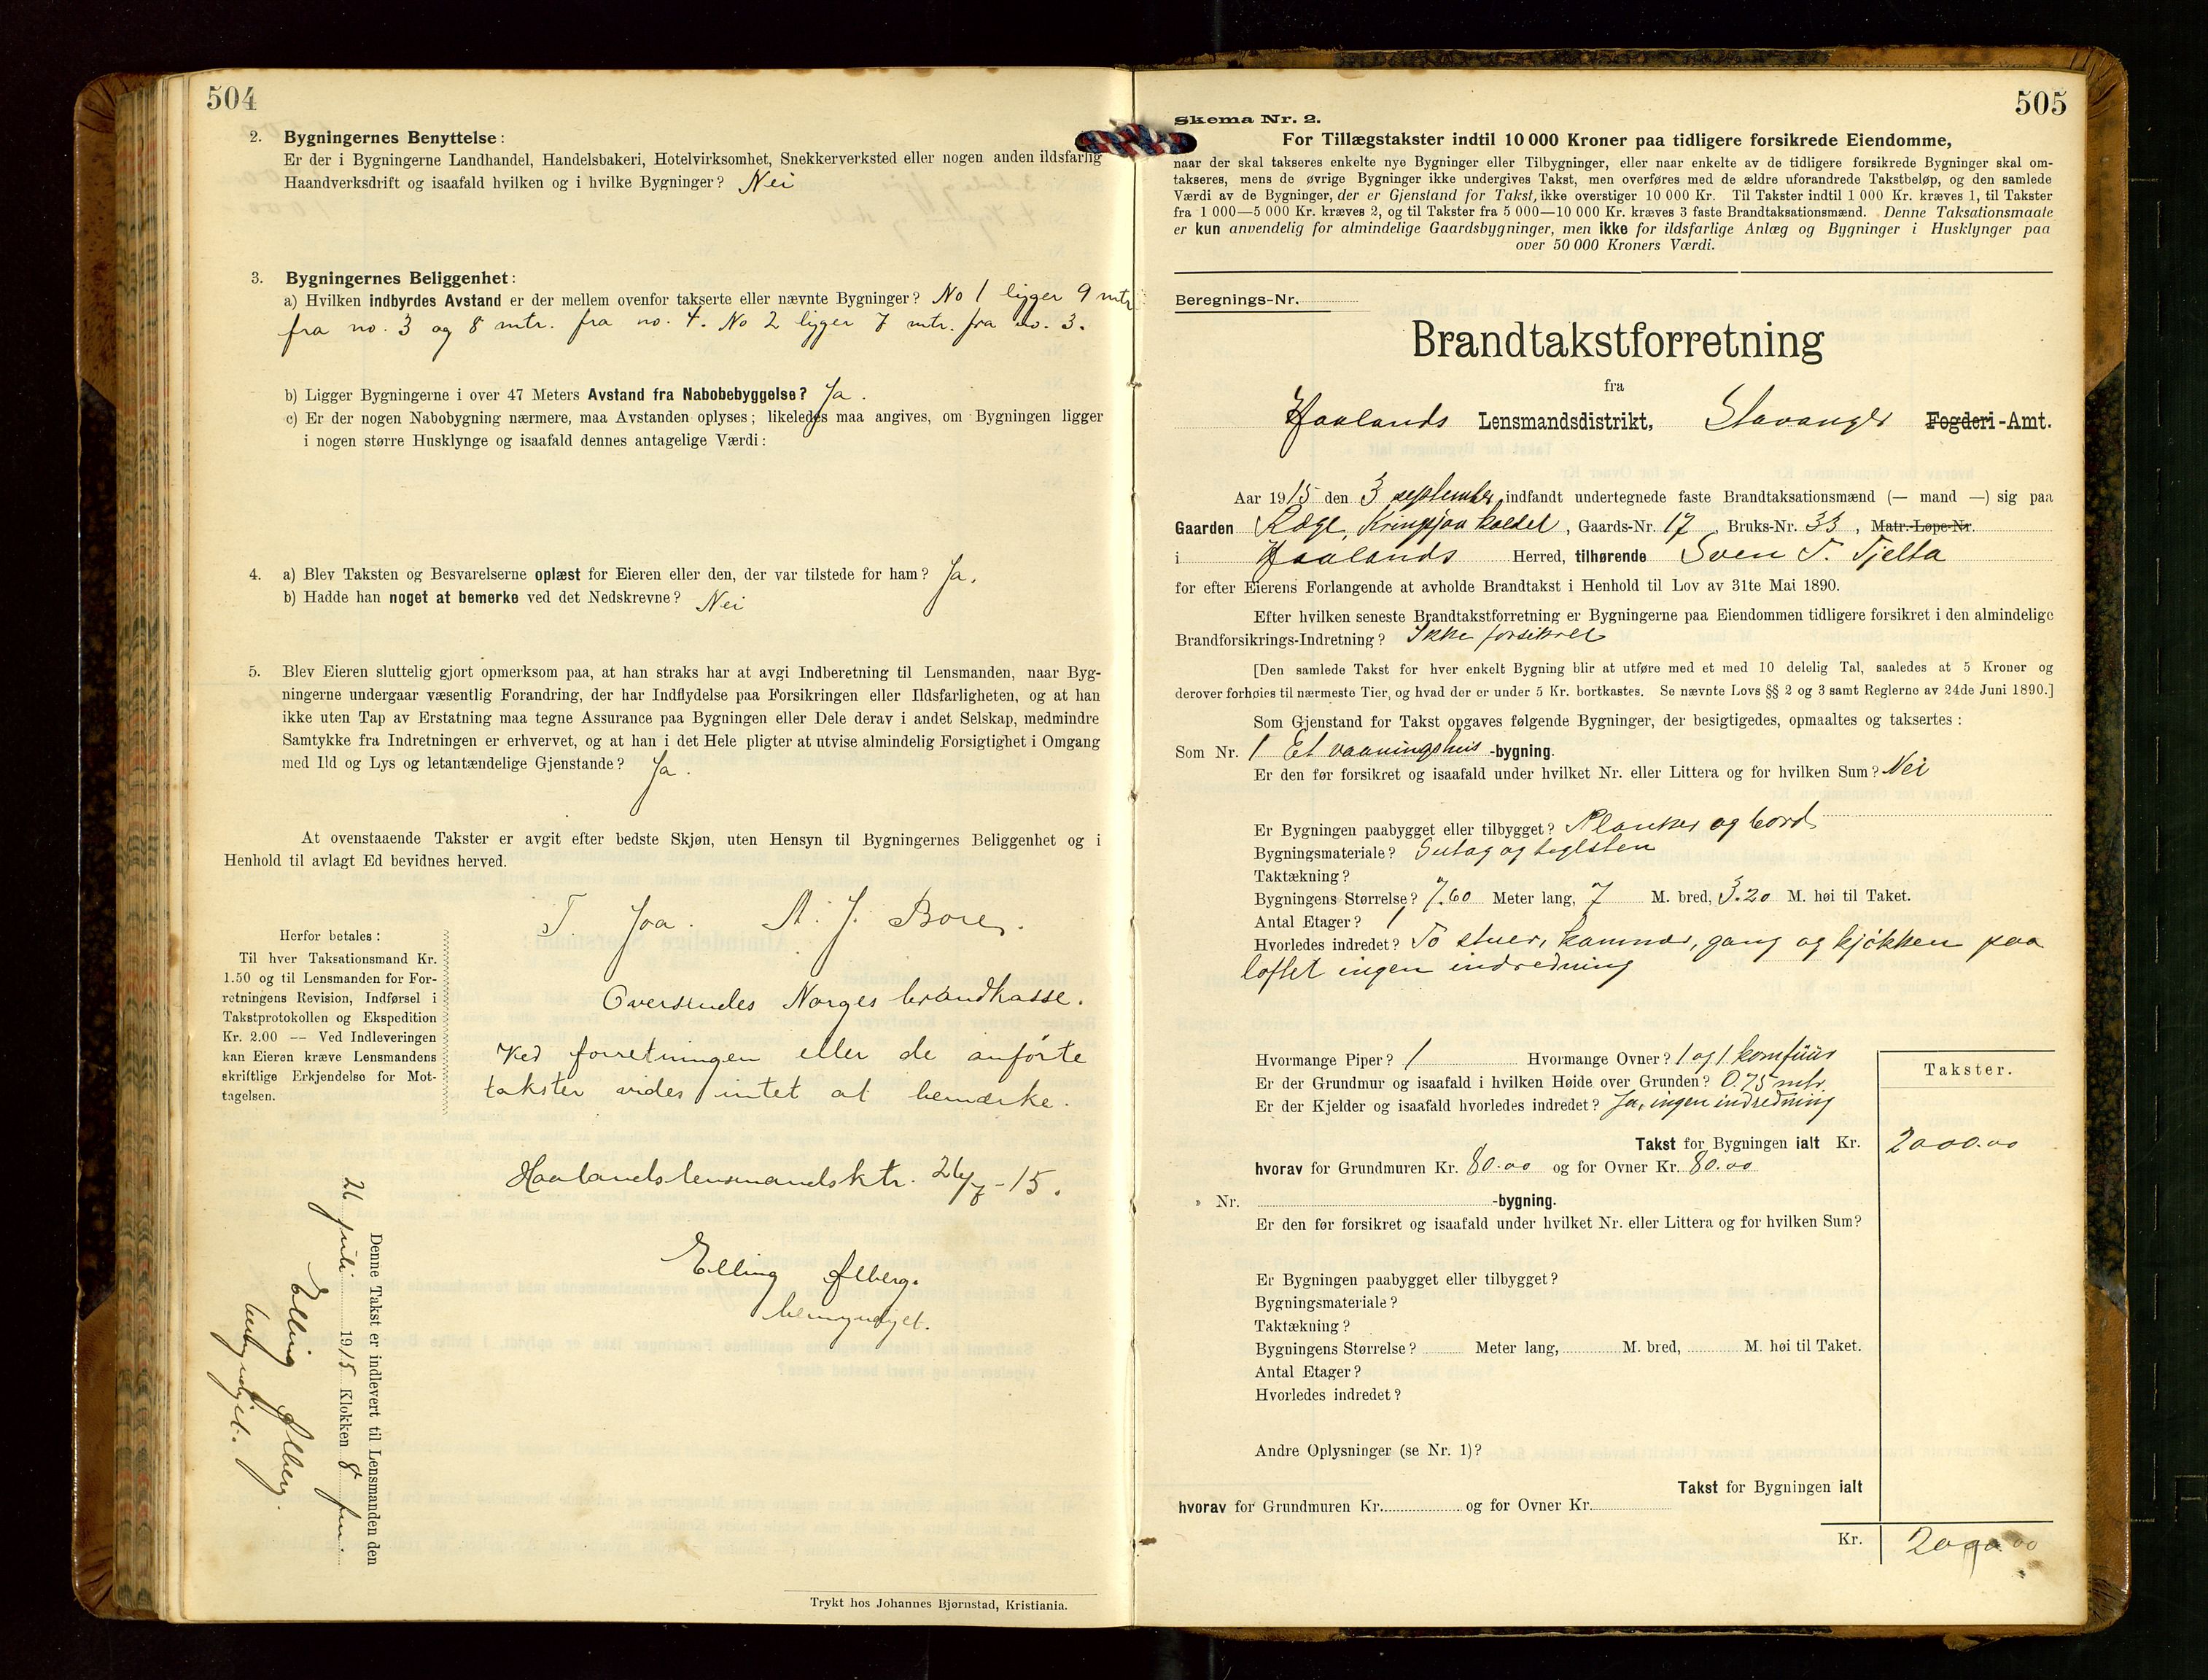 504
2. Bygningernes Benyttelse:
Er der i Bygningerne Landhandel, Handelsbakeri, Hotelvirksomhet, Snekkerverksted eller nogen anden ildsfarlig
Haandverksdrift og isaafald hvilken og i hvilke Bygninger? Nei
3. Bygningernes Beliggenhet:
a) Hvilken indbyrdes Avstand er der mellem ovenfor takserte eller nævnte Bygninger? No 1 ligger 9 mtr
fra no. 3 og 8 mtr. fra no. 4. No 2 ligger 7 mtr. fra no. 3.
b) Ligger Bygningerne i over 47 Meters Avstand fra Nabobebyggelse? Ja.
c) Er der nogen Nabobygning nærmere, maa Avstanden oplyses; likeledes maa angives, om Bygningen ligger
i nogen større Husklynge og isaafald dennes antagelige Værdi:
4. a) Blev Taksten og Besvarelserne oplæst for Eieren eller den, der var tilstede for ham? Ja.
b) Hadde han noget at bemerke ved det Nedskrevne? Nei
5. Blev Eieren sluttelig gjort opmerksom paa, at han straks har at avgi Indberetning til Lensmanden, naar Byg-
ningerne undergaar væsentlig Forandring, der har Indflydelse paa Forsikringen eller Ildsfarligheten, og at han
ikke uten Tap av Erstatning maa tegne Assurance paa Bygningen eller Dele derav i andet Selskap, medmindre
Samtykke fra Indretningen er erhvervet, og at han i det Hele pligter at utvise almindelig Forsigtighet i Omgang
med Ild og Lys og letantændelige Gjenstande? Ja.
At ovenstaaende Takster er avgit efter bedste Skjøn, uten Hensyn til Bygningernes Beliggenhet og i
Henhold til avlagt Ed bevidnes herved.
T. Joa. A. J. Bore.
Herfor betales:
Til hver Taksationsmand Kr.
1.50 og til Lensmanden for For-
retningens Revision, Indførsel i
Takstprotokollen og Ekspedition
Kr. 2.00 — Ved Indleveringen
kan Eieren kræve Lensmandens
skriftlige Erkjendelse for Mot-
tagelsen.
Oversendes Norges brandkasse.
Ved forretningen eller de anførte
takster vides intet at bemærke.
Haalands lensmandsktr. 26/7-15.
Elling Ølberg.
bemyndiget.
Denne Takst er indlevert til Lensmanden den
26 juli 1915 Klokken 8 fm.
Elling Ølberg.
bemyndiget.
Trykt hos Johannes Bjørnstad, Kristiania.
505
Skema Nr. 2.
For Tillægstakster indtil 10 000 Kroner paa tidligere forsikrede Eiendomme,
naar der skal takseres enkelte nye Bygninger eller Tilbygninger, eller naar enkelte av de tidligere forsikrede Bygninger skal om-
takseres, mens de øvrige Bygninger ikke undergives Takst, men overføres med de ældre uforandrede Takstbeløp, og den samlede
Værdi av de Bygninger, der er Gjenstand for Takst, ikke overstiger 10 000 Kr. Til Takster indtil 1 000 Kr. kræves 1, til Takster
fra 1 000—5 000 Kr. kræves 2, og til Takster fra 5 000—10 000 Kr. kræves 3 faste Brandtaksationsmænd. Denne Taksationsmaate
er kun anvendelig for almindelige Gaardsbygninger, men ikke for ildsfarlige Anlæg og Bygninger i Husklynger paa
over 50 000 Kroners Værdi.
Beregnings-Nr.
Brandtakstforretning
fra
Haalands Lensmandsdistrikt, Stavanger Fogderi-Amt.
Aar 1915 den 3 september indfandt undertegnede faste Brandtaksationsmænd (— mand —) sig paa
Gaarden Ræge, Kringsjaa kaldet, Gaards-Nr. 17, Bruks-Nr. 33, Matr.-Løpe-Nr.
i Haalands Herred, tilhørende Sven T. Tjelta
for efter Eierens Forlangende at avholde Brandtakst i Henhold til Lov av 31te Mai 1890.
Efter hvilken seneste Brandtakstforretning er Bygningerne paa Eiendommen tidligere forsikret i den almindelige
Brandforsikrings-Indretning? Ikke forsikret
[Den samlede Takst for hver enkelt Bygning blir at utføre med et med 10 delelig Tal, saaledes at 5 Kroner og
derover forhøies til nærmeste Tier, og hvad der er under 5 Kr. bortkastes. Se nævnte Lovs §§ 2 og 3 samt Reglerne av 24de Juni 1890.]
Som Gjenstand for Takst opgaves følgende Bygninger, der besigtigedes, opmaaltes og taksertes:
Som Nr. 1 Et vaaningshus -bygning.
Er den før forsikret og isaafald under hvilket Nr. eller Littera og for hvilken Sum? Nei
Er Bygningen paabygget eller tilbygget? Planker og bord
Bygningsmateriale? Sutag og teglsten
Taktækning?
Bygningens Størrelse? 7.60 Meter lang, 7 M. bred, 3.20 M. høi til Taket.
Antal Etager? 1
Hvorledes indredet? To stuer, kammer, gang og kjøkken paa
loftet ingen indredning
Hvormange Piper? 1 Hvormange Ovner? 1 og 1 komfüür
Er der Grundmur og isaafald i hvilken Høide over Grunden? 0.75 mtr.
Er der Kjelder og isaafald hvorledes indredet? Ja, ingen indredning
Takster.
Takst for Bygningen ialt Kr. 2000.00
hvorav for Grundmuren Kr. 80.00 og for Ovner Kr. 80.00
» Nr. -bygning.
Er den før forsikret og isaafald under hvilket Nr. eller Littera og for hvilken Sum?
Er Bygningen paabygget eller tilbygget?
Bygningsmateriale?
Taktækning?
Bygningens Størrelse? Meter lang, M. bred, M. høi til Taket.
Antal Etager?
Hvorledes indredet?
Andre Oplysninger (se Nr. 1)?
Takst for Bygningen ialt
hvorav for Grundmuren Kr. og for Ovner Kr.
Kr. 2000.00